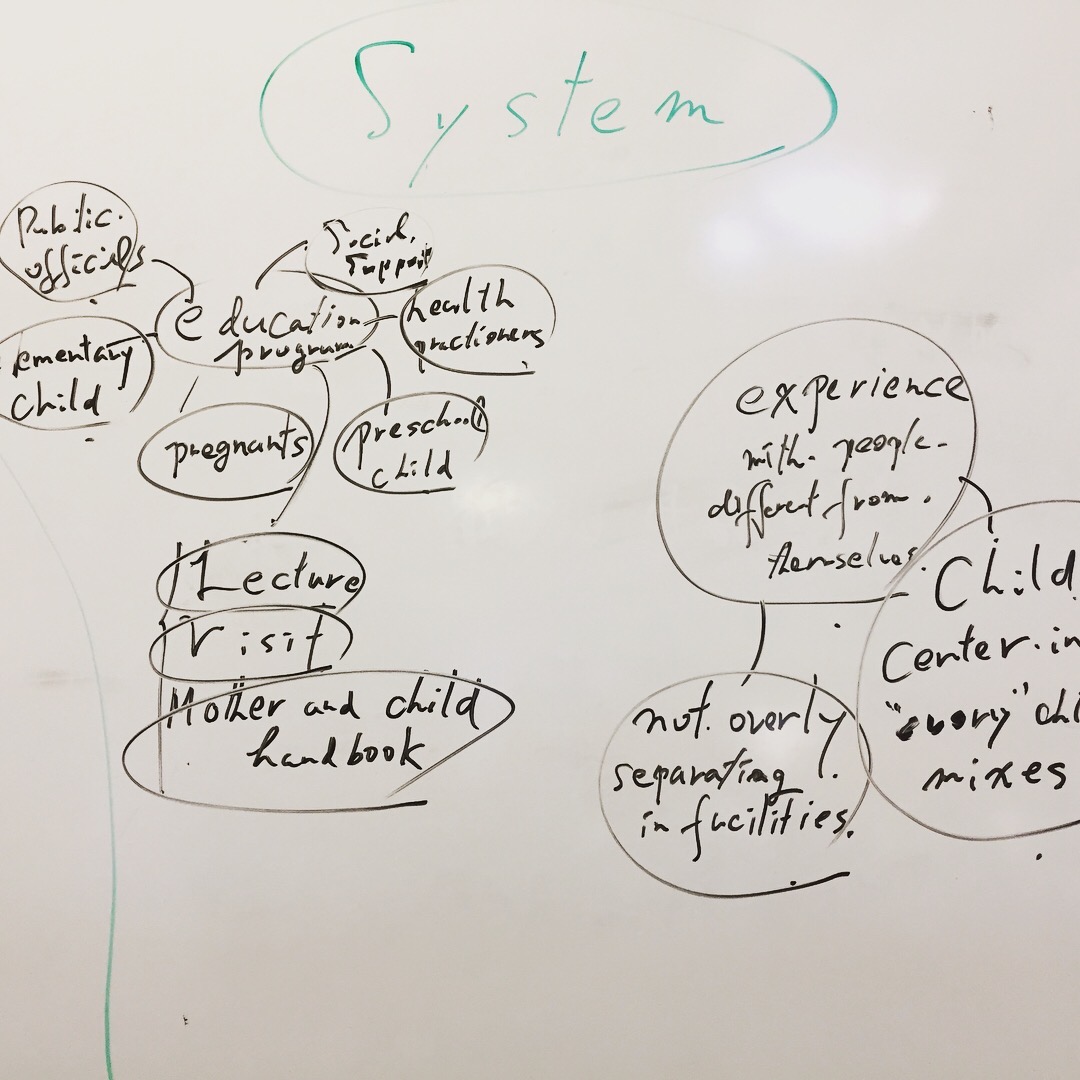 System
Public
officials
Social
Support
education
program
health
practioners
ementary
child
pregnants
preschool
child
Lecture
Visit
Mother and child
handbook
experience
with people
different from
themselves.
Child
Center in
"every" chi
mixes
not overly
separating
in facilities.